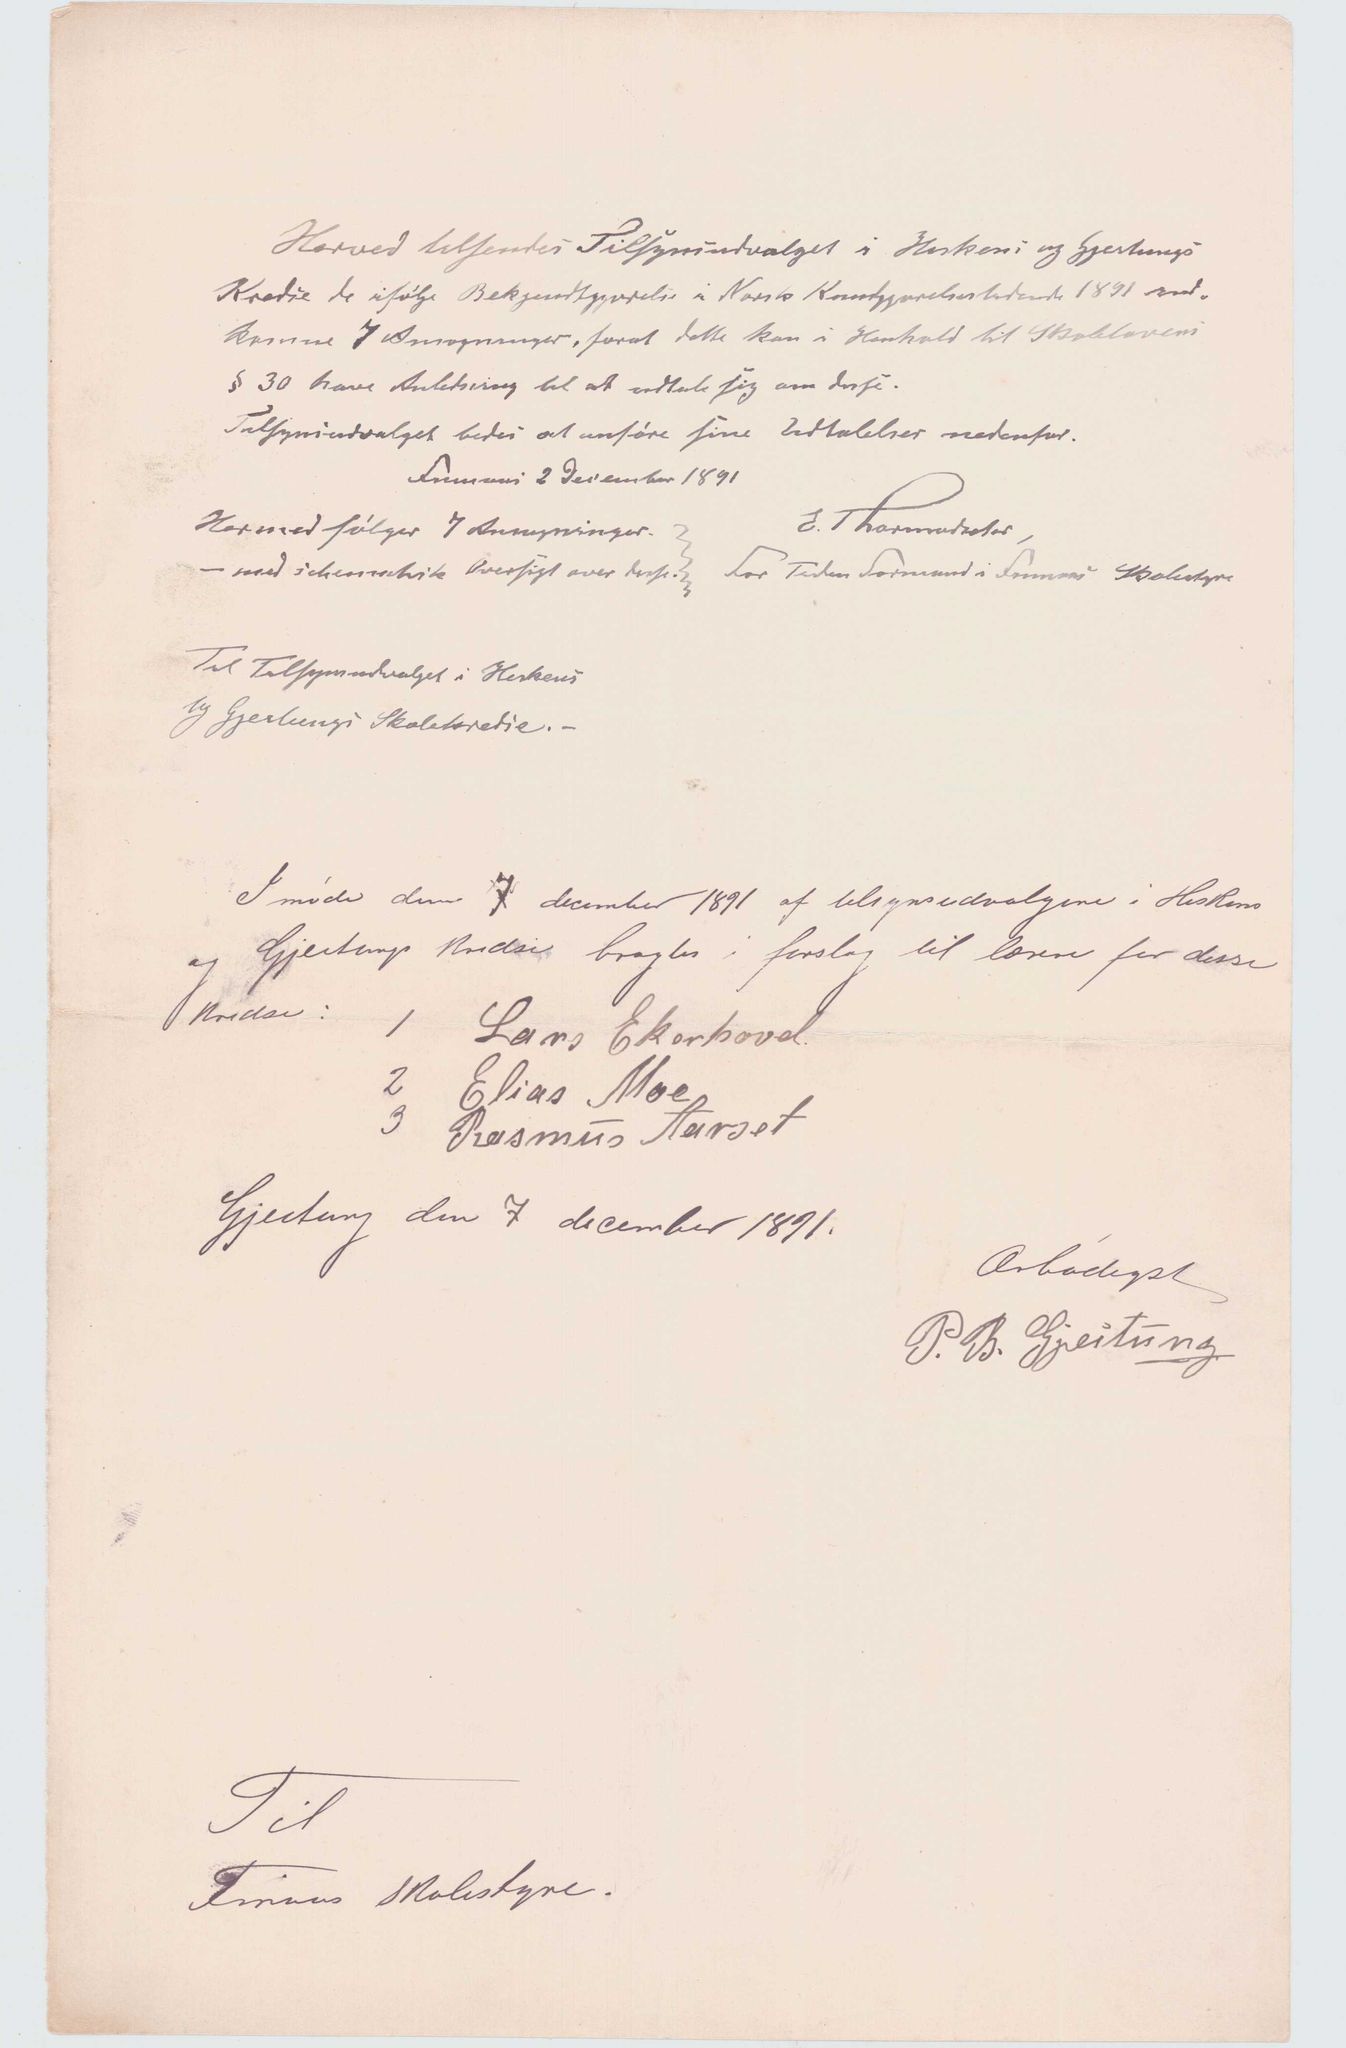 Herved tilsendes Tilsynsudvalget i Heskens og Gjertungs
Kredse de ifølge Bekjendtgjørelse i Norsk Kundgjørelsestidende 1891 ind-
komne 7 Ansøgninger, forat dette kan i Henhold til Skolelovens
§ 30 have Anledning til at udtale sig om disse.
Tilsynsudvalget bedes at anføre sine Udtalelser nedenfor.
Finnaas 2 December 1891
Hermed følger 7 Ansøgninger.
E. Thormodsæter,
– med schematisk Oversigt over disse.
For Tiden Formand i Finnaas Skolestyre
Til Tilsynsudvalget i Heskens
og Gjertungs Skolekredse. –
I møde den 7 december 1891 af tilsynsudvalgene i Heskens
og Gjeitungs kredse bragtes i forslag til lærere for disse
kredse:
1 Lars Ekerhovd.
2 Elias Moe
3 Rasmus Aarset
Gjeitung den 7 december 1891.
Ærbødigst
P. B. Gjeitung
Til
Finnaas skolestyre.